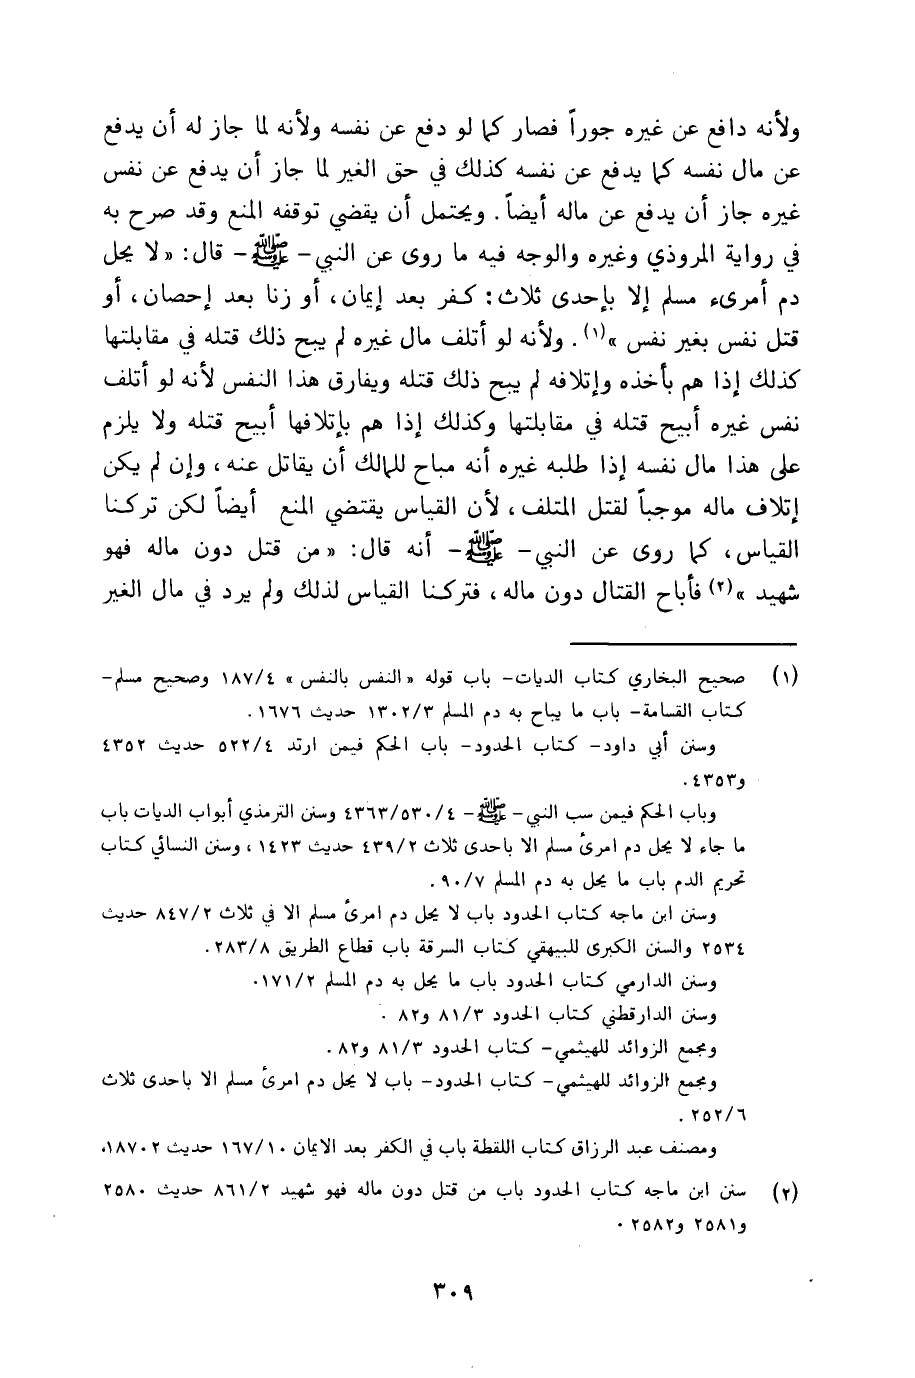 ولأنه دافع عن غيره جوراً فصار كما لو دفع عن نفسه ولأنه لما جاز له أن يدفع
عن مال نفسه كما يدفع عن نفسه كذلك في حق الغير لما جاز أن يدفع عن نفس
غيره جاز أن يدفع عن ماله أيضاً. ويحتمل أن يقضي توقفه المنع وقد صرح به
في رواية المروذي وغيره والوجه فيه ما روى عن النبي- ﷺ- قال: «لا يحل
دم أمرىء مسلم إلا بإحدى ثلاث: كفر بعد إيمان، أو زنا بعد إحصان، أو
قتل نفس بغير نفس»(١). ولأنه لو أتلف مال غيره لم يبح ذلك قتله في مقابلتها
كذلك إذا هم بأخذه وإتلافه لم يبح ذلك قتله ويفارق هذا النفس لأنه لو أتلف
نفس غيره أبيح قتله في مقابلتها وكذلك إذا هم بإتلافها أبيح قتله ولا يلزم
على هذا مال نفسه إذا طلبه غيره أنه مباح للمالك أن يقاتل عنه، وإن لم يكن
إتلاف ماله موجباً لقتل المتلف، لأن القياس يقتضي المنع أيضاً لكن تركنا
القياس، كما روى عن النبي- ﷺ- أنه قال: «من قتل دون ماله فهو
شهيد»(٢) فأباح القتال دون ماله، فتركنا القياس لذلك ولم يرد في مال الغير
(١) صحيح البخاري كتاب الديات- باب قوله «النفس بالنفس» ١٨٧/٤ وصحيح مسلم-
كتاب القسامة- باب ما يباح به دم المسلم ١٣٠٢/٣ حديث ١٦٧٦.
وسنن أبي داود- كتاب الحدود- باب الحكم فيمن ارتد ٥٢٢/٤ حديث ٤٣٥٢
و٤٣٥٣.
وباب الحكم فيمن سب النبي- ﷺ- ٤٣٦٣/٥٣٠/٤ وسنن الترمذي أبواب الديات باب
ما جاء لا يحل دم امرىُ مسلم الا باحدى ثلاث ٤٣٩/٢ حديث ١٤٢٣، وسنن النسائي كتاب
تحريم الدم باب ما يحل به دم المسلم ٩٠/٧.
وسنن ابن ماجه كتاب الحدود باب لا يحل دم امرىُ مسلم الا في ثلاث ٨٤٧/٢ حديث
٢٥٣٤ والسنن الكبرى للبيهقي كتاب السرقة باب قطاع الطريق ٢٨٣/٨.
وسنن الدارمي كتاب الحدود باب ما يحل به دم المسلم ١٧١/٢.
وسنن الدارقطني كتاب الحدود ٨١/٣ و٨٢.
ومجمع الزوائد للهيثمي- كتاب الحدود ٨١/٣ و٨٢.
ومجمع الزوائد للهيثمي- كتاب الحدود- باب لا يحل دم امرىُ مسلم الا باحدى ثلاث
٢٥٢/٦.
ومصنف عبد الرزاق كتاب اللقطة باب في الكفر بعد الايمان ١٦٧/١٠ حديث ١٨٧٠٢.
(٢) سنن ابن ماجه كتاب الحدود باب من قتل دون ماله فهو شهيد ٨٦١/٢ حديث ٢٥٨٠
و٢٥٨١ و٢٥٨٢.
٣٠٩